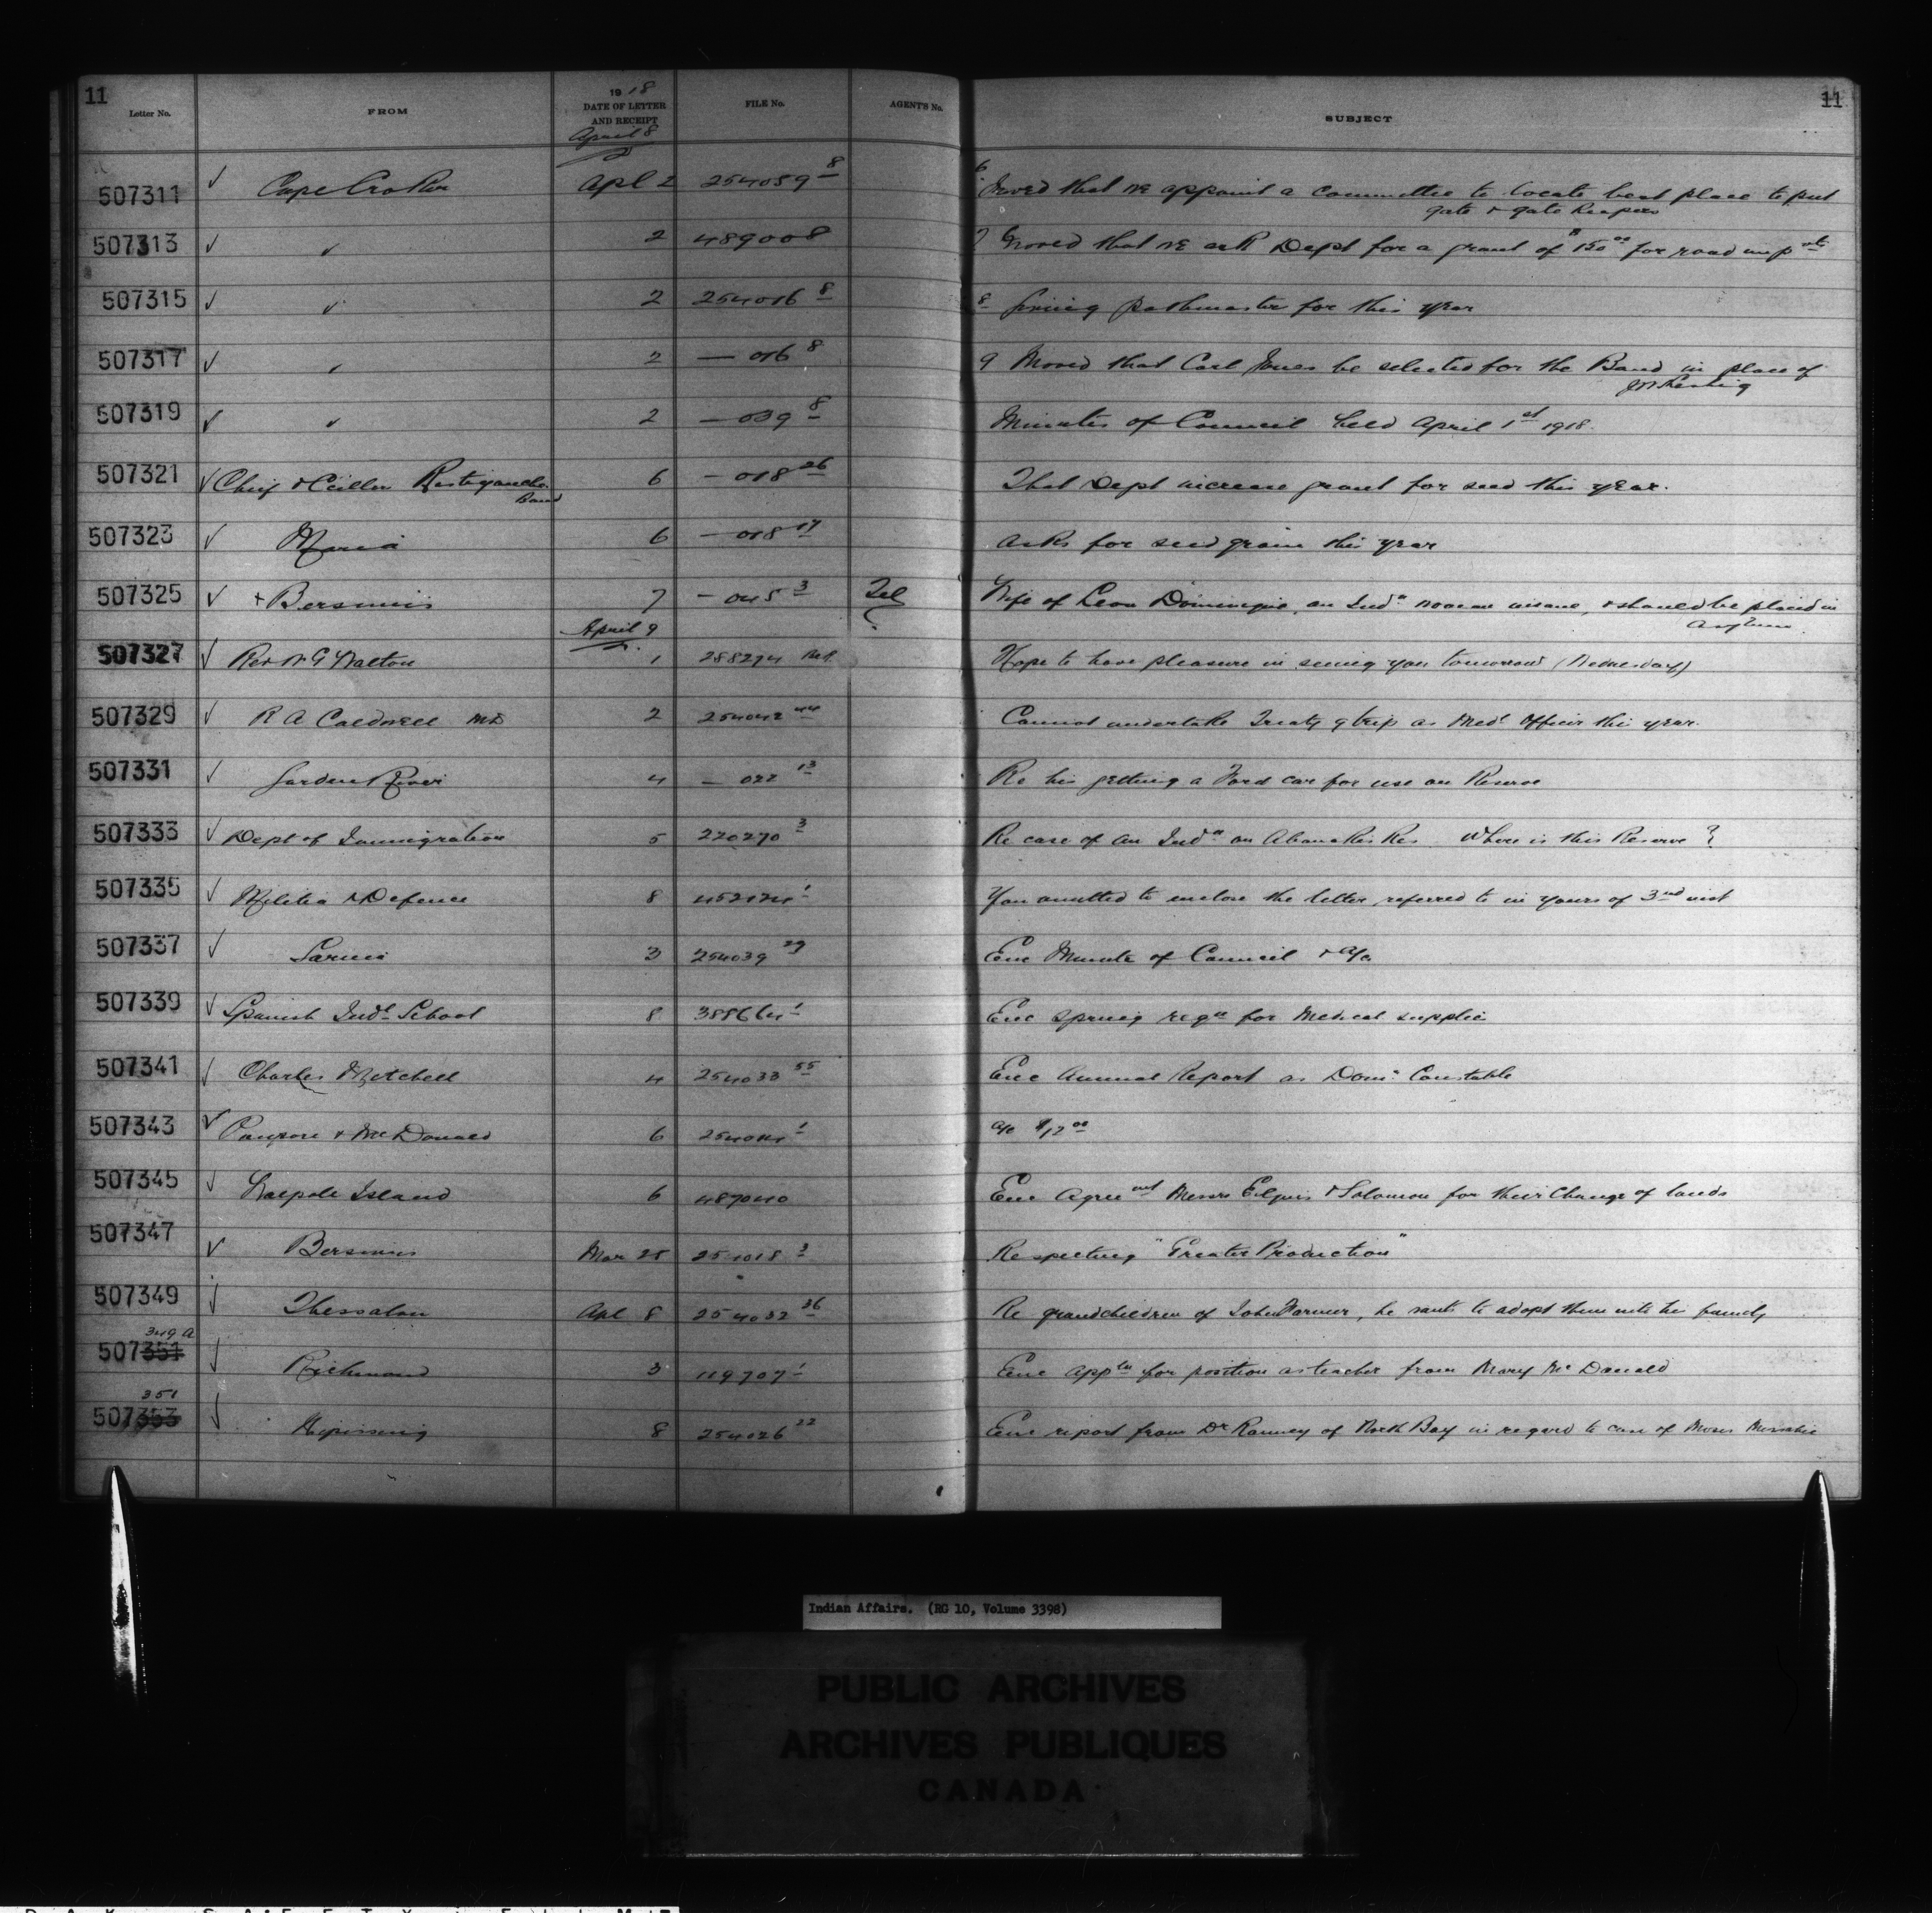 11
11
Letter No. FROM 1918 DATE OF LETTER AND RECEIPT FILE No. AGENT'S No. SUBJECT
April 8
507311 ✓ Cape Croker Apl 2 254059 8 6 Moved that we appoint a committee to locate best place to put
gate & gate keepers
507313 ✓ " 2 489008 7 Moved that we ask Dept for a grant of $150 00 for road imp nts
507315 ✓ " 2 254016 8 8 pathmaster for this year
507317 ✓ " 2 — 016 8 9 Moved that Carl Jones be selected for the Band in place of
507319 ✓ " 2 — 039 8 Minutes of Council held April 1st 1918.
507321 ✓ Chief & Cecillor Restigouche Band 6 — 018 26 That Dept increase grant for seed this year.
507323 ✓ Maria 6 — 018 17 asks for seed grain this year
507325 ✓ + Bersimis 7 — 045 3 Tel Wife of Leon Dominique, an Indn woman insane, & should be placed in
asylum
April 9
507327 ✓ Rev W G Walton 1 288274 Hope to have pleasure in seeing you tomorrow (Wednesday)
507329 ✓ R A Caldwell MD 2 254042 44 Cannot undertake Treaty 9 trip as Medl Officer this year.
507331 ✓ Garden River 4 — 022 13 Re his getting a Ford car for use on Reserve
507333 ✓ Dept of Immigration 5 220270 3 Re case of an Indn on Abanakis Res Where is this Reserve ?
507335 ✓ Militia & Defence 8 452124 1 You omitted to enclose the letter referred to in yours of 3rd inst
507337 ✓ Sarnia 3 254039 29 Enc Minute of Council & a/c
507339 ✓ Spanish Indl School 8 388664 1 Enc Spring reqn for Medical supplies
507341 ✓ Charles Mitchell 4 254033 55 Enc Annual Report as Domn Constable
507343 ✓ & McDonald 6 1 a/c $12 00
507345 ✓ Walpole Island 6 487040 Enc Agreemt Messrs Elgin & Solomon for their Change of lands
507347 ✓ Bersimis Mar 25 254018 3 Respecting "Greater Production"
507349 ✓ Thessalon Apl 8 254032 36 Re grandchildren of John Warner, he wants to adopt them into his family
349 A
507351 ✓ Richmond 3 119707 1 Enc appln for position as teacher from Mary McDonald
351
507353 ✓ Nipissing 8 254026 22 Enc report from Dr Ranney of North Bay in regard to case of Moses
Indian Affairs. (RG 10, Volume 3398)
PUBLIC ARCHIVES
ARCHIVES PUBLIQUES
CANADA